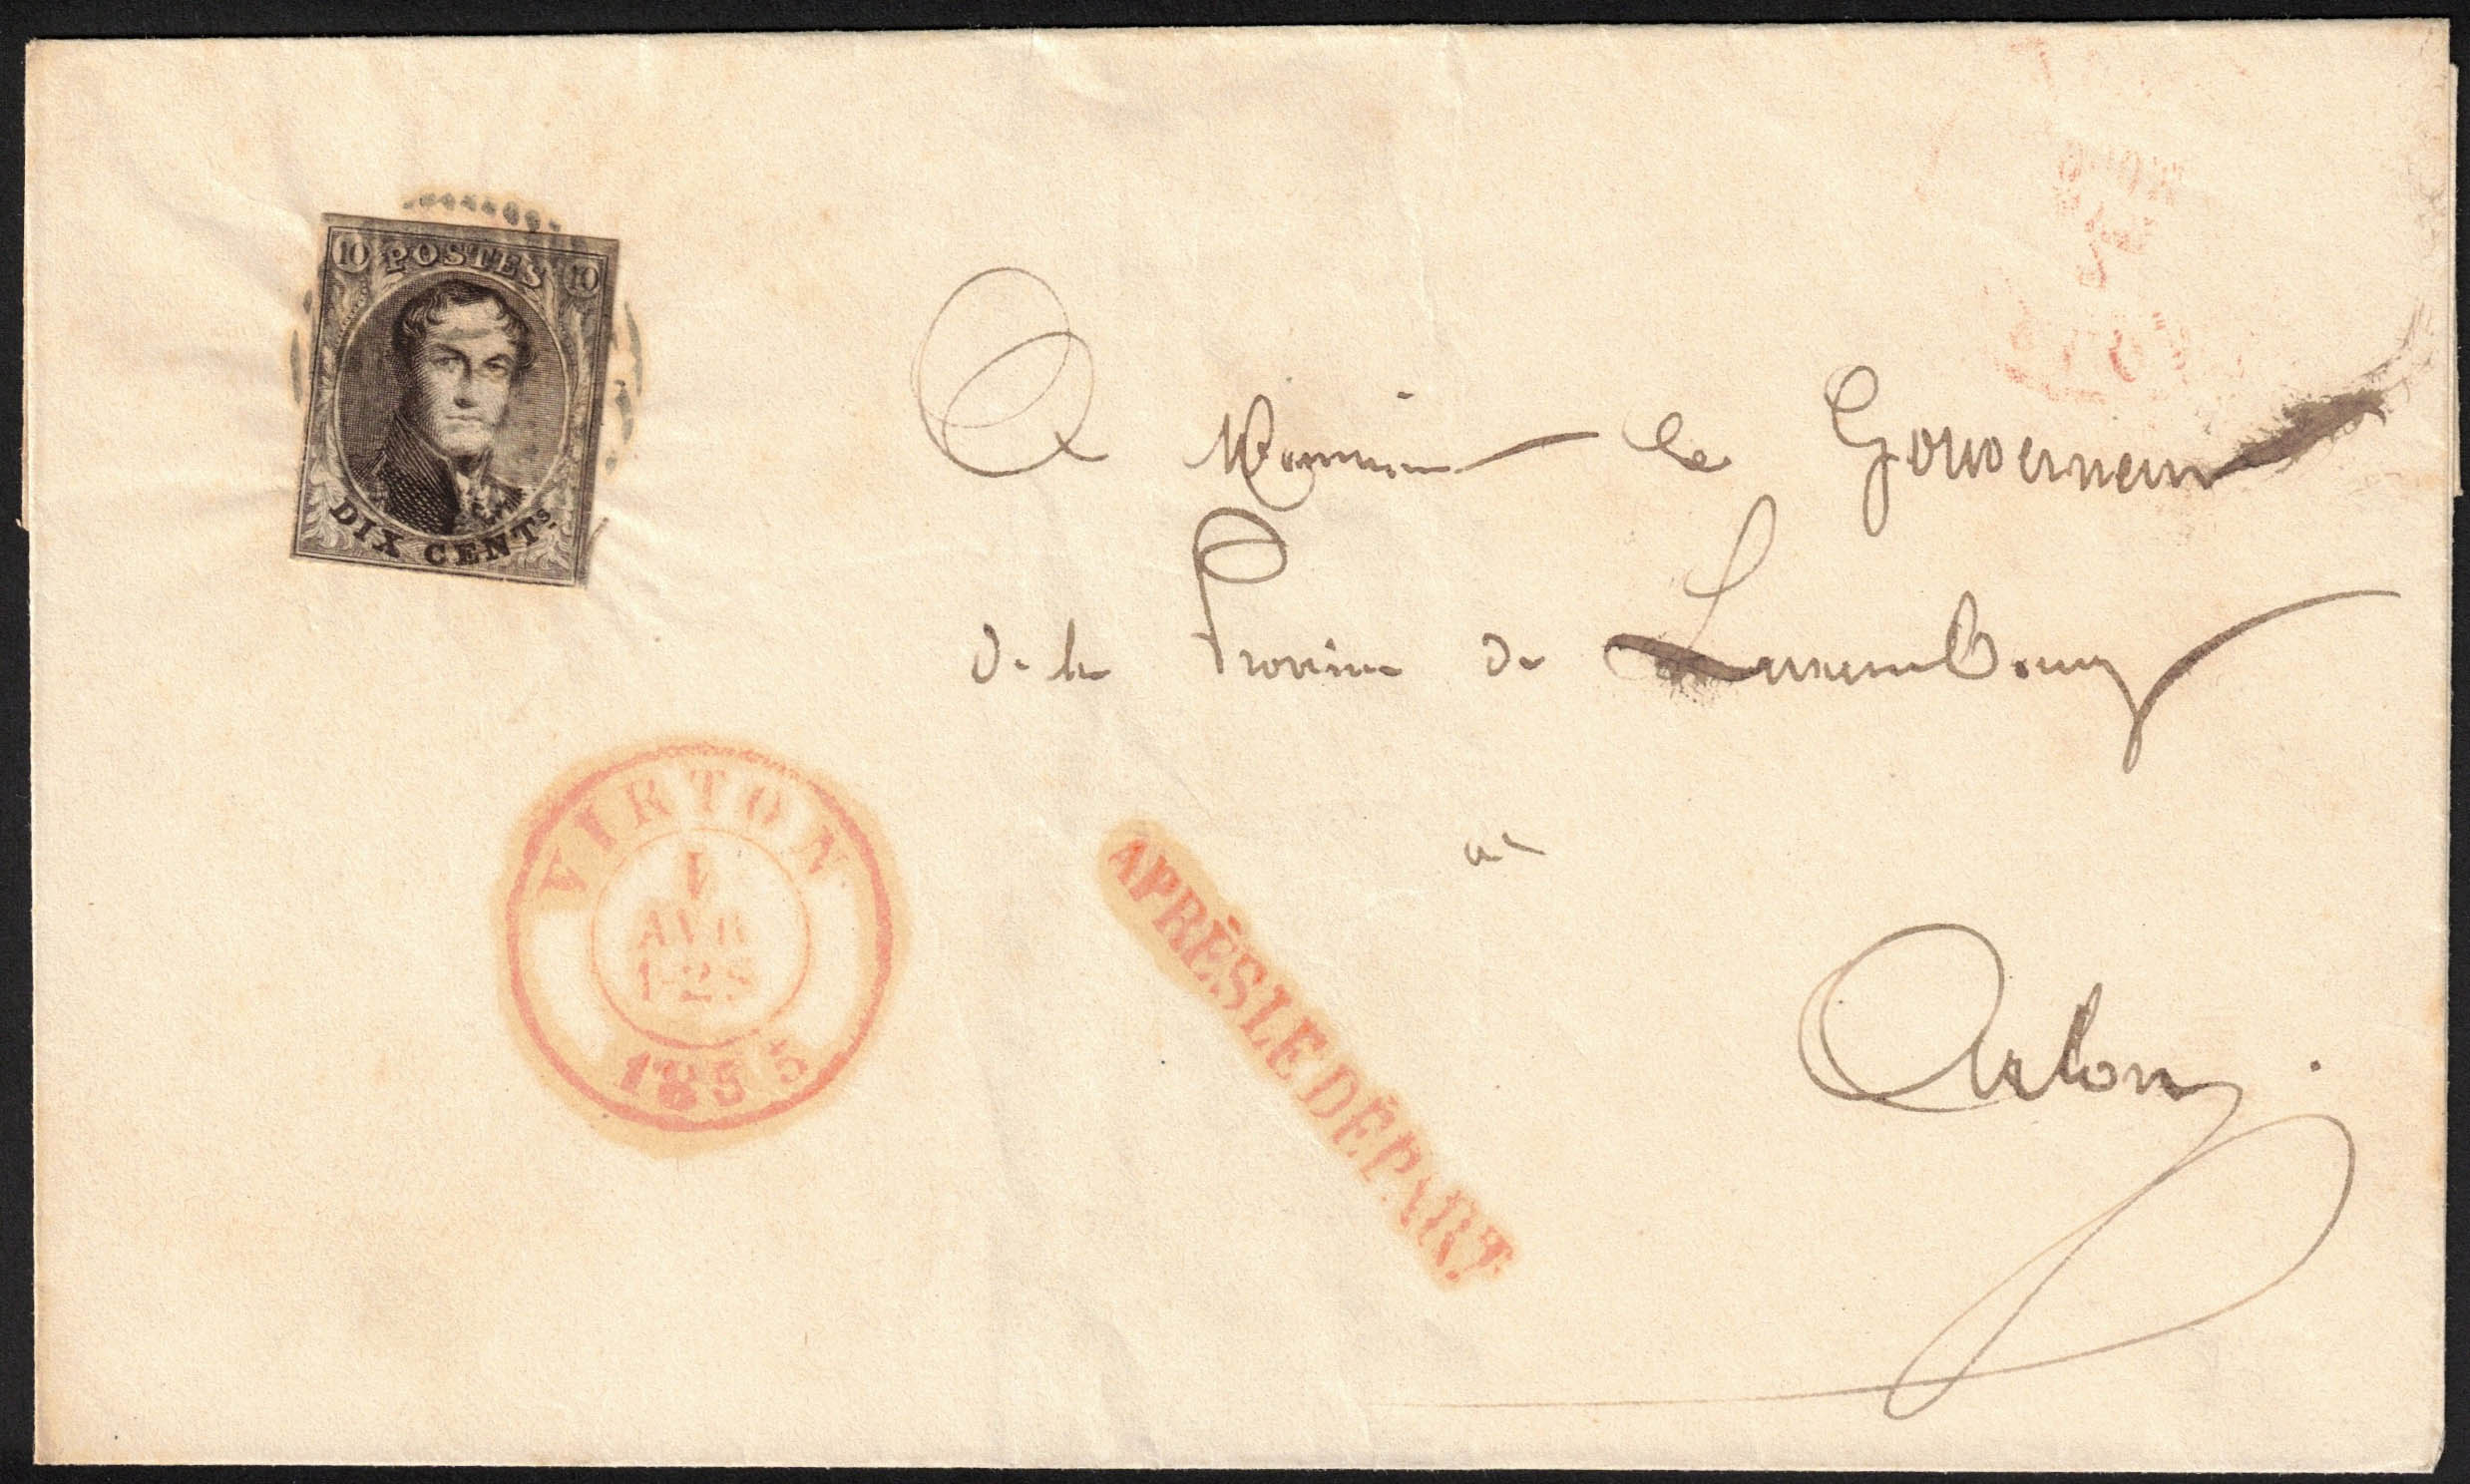 10 POSTES 10
DIX CENTs.
A Monsieur le Gouverneur
de la Province de Luxembourg
à
Arlon.
VIRTON
AVR
1-2S
1855
APRÈS LE DÉPART